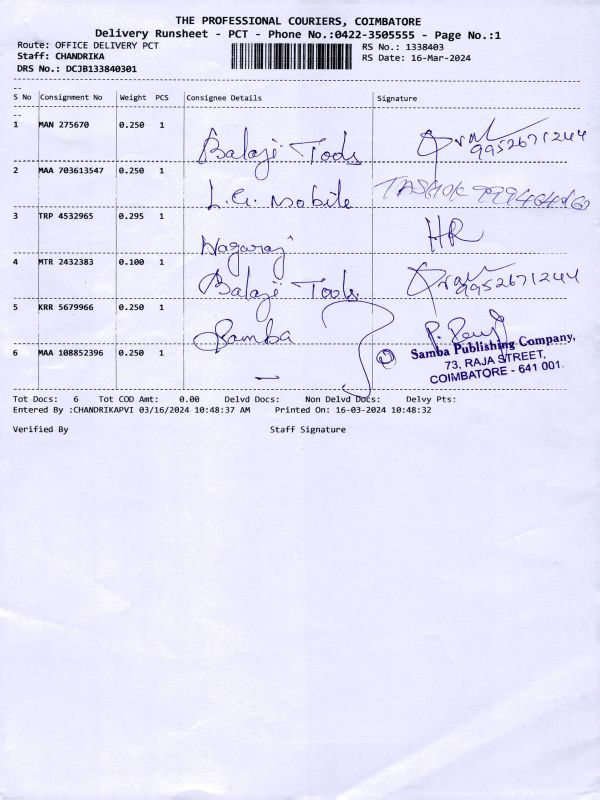 THE PROFESSIONAL COURIERS, COIMBATORE
Delivery Runsheet - PCT - Phone No.:0422-3505555 - Page No.:1
Route: OFFICE DELIVERY PCT RS No.: 1338403
Staff: CHANDRIKA RS Date: 16-Mar-2024
DRS No.: DCJB133840301
S No Consignment No Weight PCS Consignee Details Signature
1 MAN 275670 0.250 1 Balaji Tools 9952671244
2 MAA 703613547 0.250 1 L.G. Mobile
3 TRP 4532965 0.295 1 Nagaraj HR
4 MTR 2432383 0.100 1 Balaji Tools 9952671244
5 KRR 5679966 0.250 1 Samba
Samba Publishing Company,
73, RAJA STREET,
COIMBATORE - 641 001.
6 MAA 108852396 0.250 1
Tot Docs: 6 Tot COD Amt: 0.00 Delvd Docs: Non Delvd Docs: Delvy Pts:
Entered By :CHANDRIKAPVI 03/16/2024 10:48:37 AM Printed On: 16-03-2024 10:48:32
Verified By Staff Signature